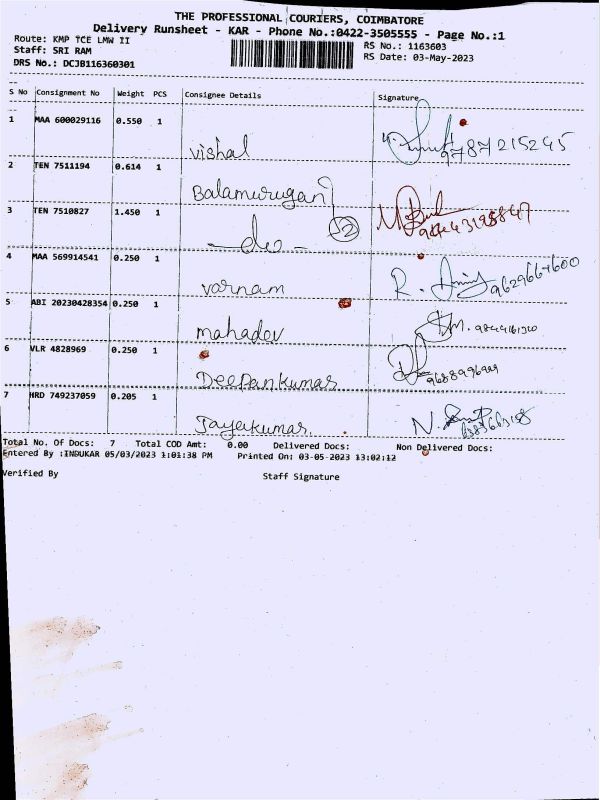 THE PROFESSIONAL COURIERS, COIMBATORE
Delivery Runsheet - KAR - Phone No.:0422-3505555 - Page No.:1
Route: KMP TCE LMW II
RS No.: 1163603
Staff: SRI RAM
RS Date: 03-May-2023
DRS No.: DCJB116360301
S No Consignment No Weight PCS Consignee Details Signature
1 MAA 600029116 0.550 1
vishal 9787215245
2 TEN 7511194 0.614 1
Balamurugan
3 TEN 7510827 1.450 1
-do- 52
4 MAA 569914541 0.250 1
varnam R.
5 ABI 20230428354 0.250 1
mahadev
6 VLR 4828969 0.250 1
Deepankumar
7 HRD 749237059 0.205 1
Jayakumar. N.
Total No. Of Docs: 7 Total COD Amt: 0.00 Delivered Docs: Non Delivered Docs:
Entered By :INDUKAR 05/03/2023 1:01:38 PM Printed On: 03-05-2023 13:02:12
Verified By Staff Signature